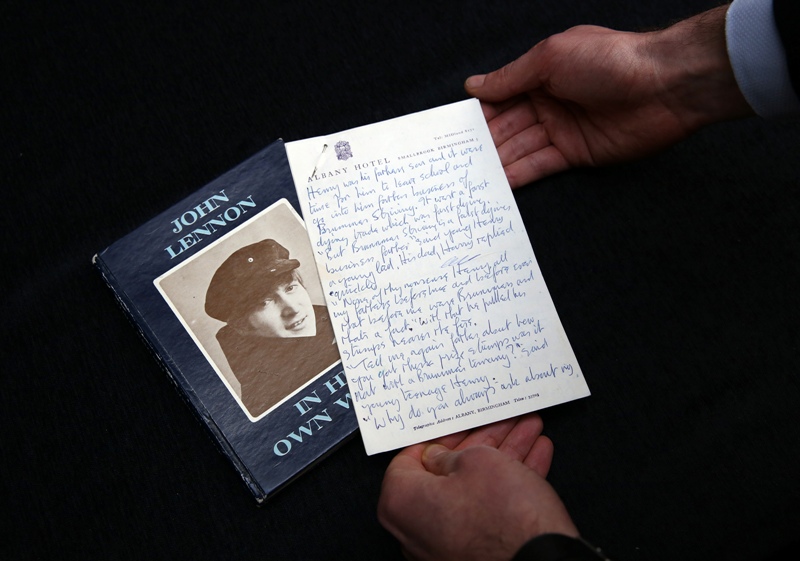 JOHN
LENNON
IN HI
OWN W
ALBANY HOTEL SMALLBROOK BIRMINGHAM 5
Henry was his fathers son and it were
time for him to leave school and
go into him father business of
Brummer Striving. It want a fast
dying trade which was fast dying.
"But Brummer Striving is a fast dying
business, father" said young Henry
a young lad. His dad, Harry replied
quickled
"None of thy nonsense Henry, all
my fathers before and before even
that before me were Brummers and
thats a fact" with that he pulled his
stumps nearer the fire.
"Tell me again father about how
you got those stumps was it
not with a Brummer ?" said
young teenage Henry.
"Why do you always ask about my,
Telegraphic Address: ALBANY, BIRMINGHAM . Telex: